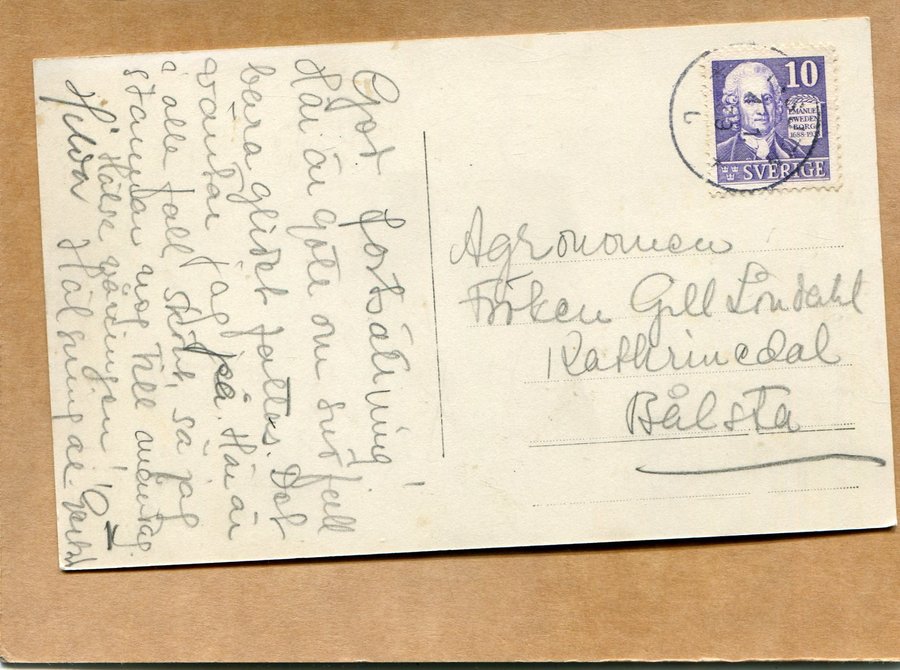 God fortsättning!
Här är gott om snö
bara glidet fattas. Det
väntar jag på. Här är
i alle fall skönt, så jag
stannar nog till måndag.
Hälsa
Hälsningar
10
EMANUEL
SWEDEN
BORG
1688-1938
SVERIGE
Agronomen
Fröken Gill Londahl
Kathrinedal
Bålsta